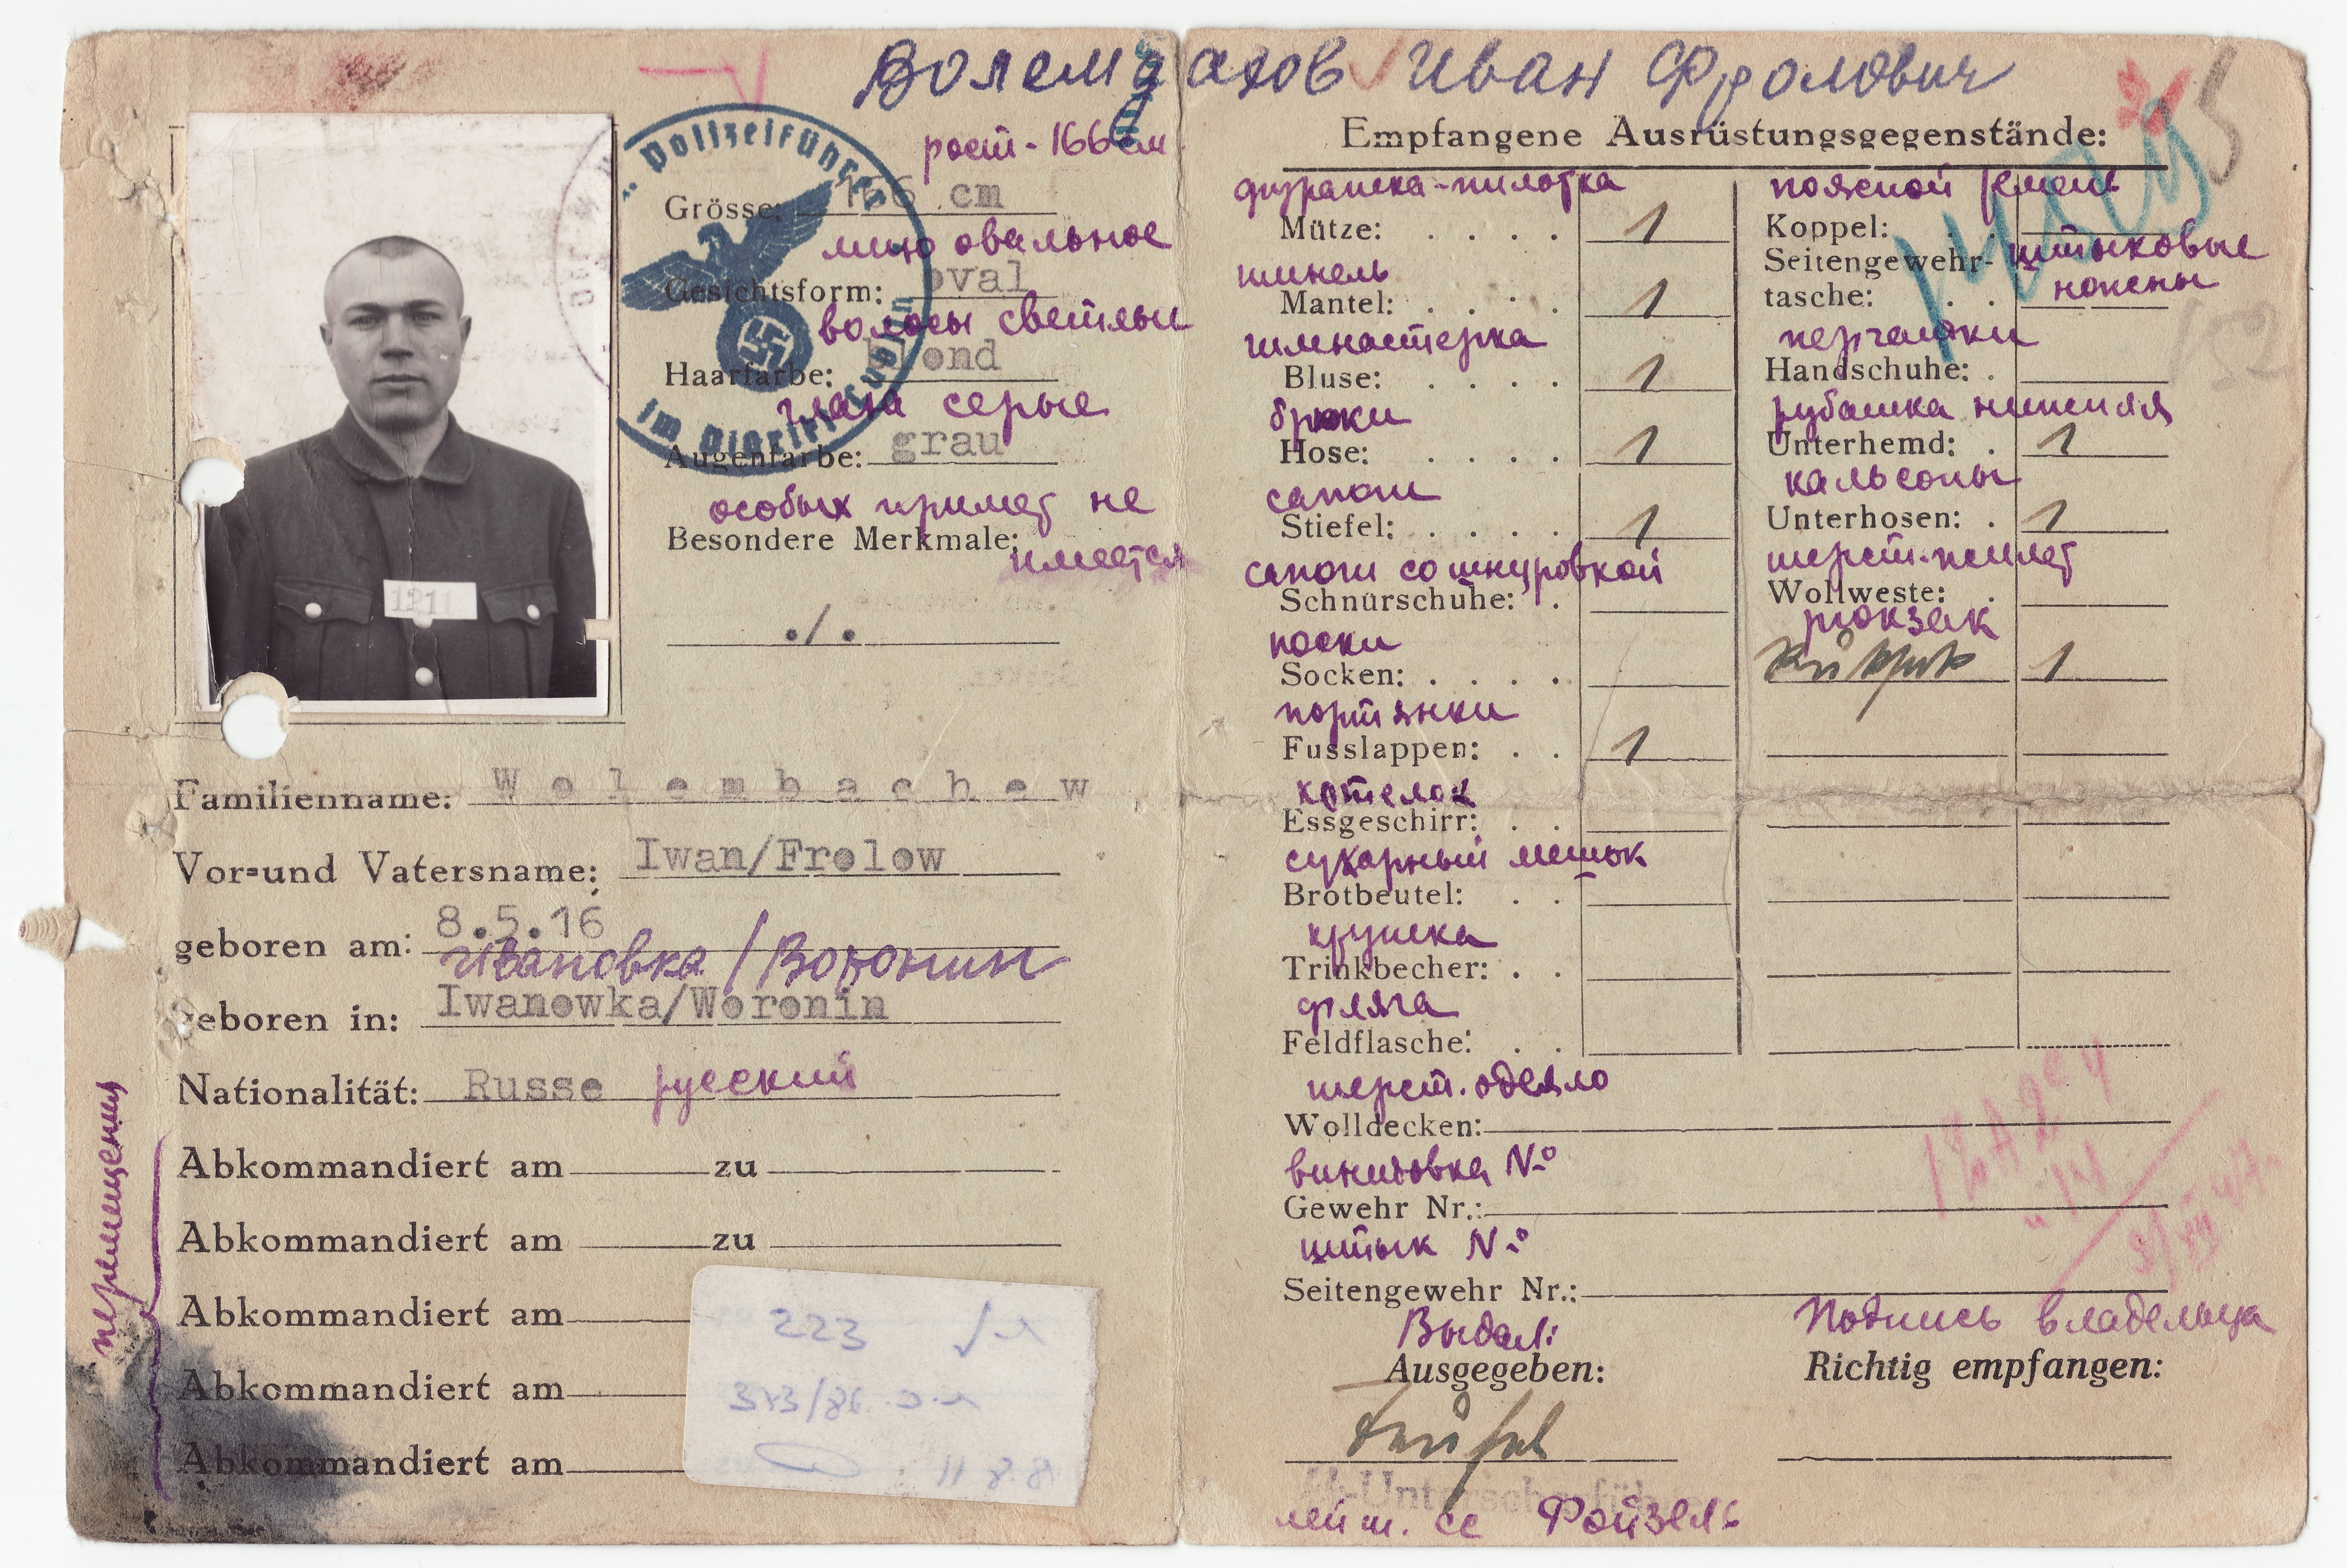 Волембахов Иван Фролович
Polizeiführer
im Distrikt Lublin
рост - 166 см
Grösse: 166 cm
лицо овальное
Gesichtsform: oval
волосы светлые
Haarfarbe: blond
глаза серые
Augenfarbe: grau
особых примет не
Besondere Merkmale:
имеется
./.
1211
Familienname: Wolembachow
Vor=und Vatersname: Iwan/Frolow
geboren am: 8.5.16
Ивановка / Воронин
geboren in: Iwanowka/Woronin
Nationalität: Russe русский
перемещения
Abkommandiert am zu
Abkommandiert am zu
Abkommandiert am
Abkommandiert am
Abkommandiert am
223
11 8.8
Empfangene Ausrüstungsgegenstände:
фуражка-пилотка
Mütze: . . . . 1
шинель
Mantel: . . . . 1
гимнастерка
Bluse: . . . . 1
брюки
Hose: . . . . 1
сапоги
Stiefel: . . . . 1
сапоги со шнуровкой
Schnürschuhe: .
носки
Socken: . . . .
портянки
Fusslappen: . . 1
котелок
Essgeschirr: . .
сухарный мешок
Brotbeutel: . .
кружка
Trinkbecher: . .
фляга
Feldflasche: . .
поясной ремень
Koppel: . .
Seitengewehr- штыковые
tasche: . . ножены
перчатки
Handschuhe: .
рубашка нижняя
Unterhemd: . 1
кальсоны
Unterhosen: . 1
шерст. жилет
Wollweste: .
рюкзак
Rüksak 1
шерст. одеяло
Wolldecken:
винтовка №
Gewehr Nr.:
штык №
Seitengewehr Nr.:
Выдал:
Ausgegeben:
Подпись владельца
Richtig empfangen:
Unterscharführer
лейт. СС Фойзель